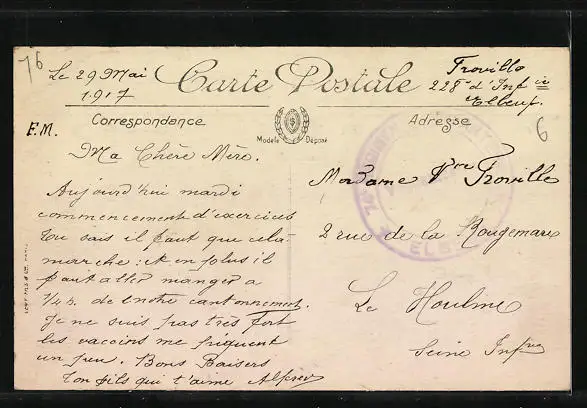 76
Le 29 Mai
1917
Carte Postale
Troville
228e d'Infie
Elbeuf.
F.M.
Correspondance
Modèle Déposé
Adresse
6
Ma Chère Mère.
Aujourd'hui mardi
commencement d'exercices
tu sais il faut que cela
marche: et en plus il
faut aller manger a
de notre cantonnement.
Je ne suis pas très fort
les vaccins me piquent
un peu. Bons Baisers
ton fils qui t'aime Alfred
Madame Vve Troville
2 rue de la Rougemare
Le Houlme
Seine Infre